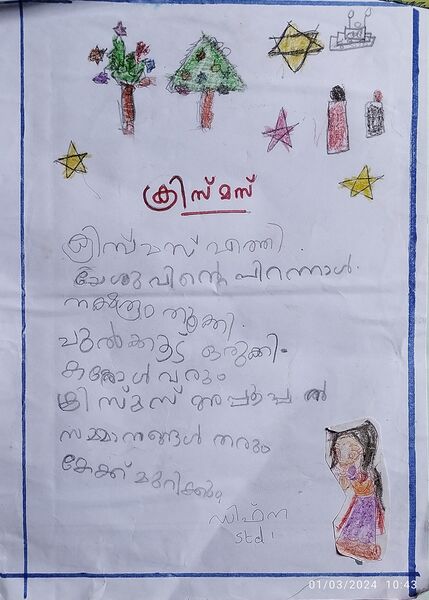 ക്രിസ്മസ്
ക്രിസ്മസ് എത്തി.
യേശുവിന്റെ പിറന്നാൾ.
നക്ഷത്രം തൂക്കി.
പുൽക്കൂട് ഒരുക്കി.
കരോൾ വരും
ക്രിസ്മസ് അപ്പൂപ്പൻ
സമ്മാനങ്ങൾ തരും
കേക്ക് മുറിക്കും.
സിഫ്ന
Std 1
01/03/2024 10:43